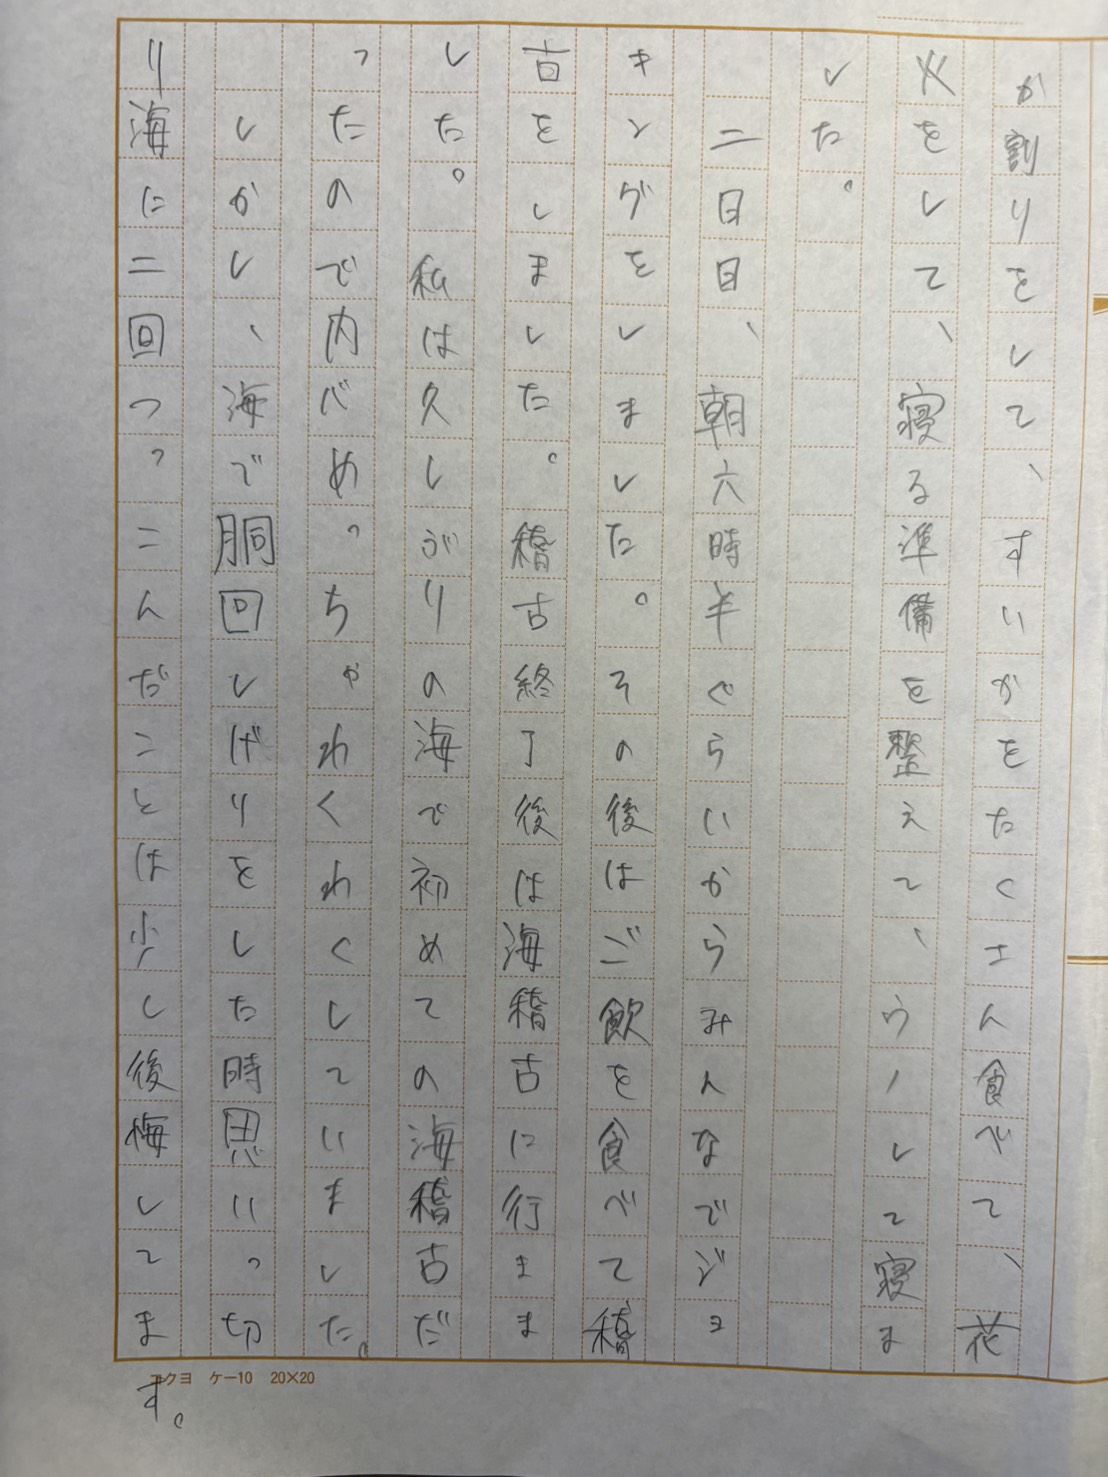 か割りをして、すいかをたくさん食べて、花
火をして、寝る準備を整えて、ウノして寝ま
した。
二日目、朝六時半ぐらいからみんなでジョ
キングをしました。その後はご飲を食べて稽
古をしました。稽古終了後は海稽古に行まま
した。私は久しぶりの海で初めての海稽古だ
ったので内心めっちゃわくわくしていました。
しかし、海で胴回しげりをした時思いっ切
り海に二回つっこんだことは少し後悔してま
す。
コクヨ ケー10 20×20